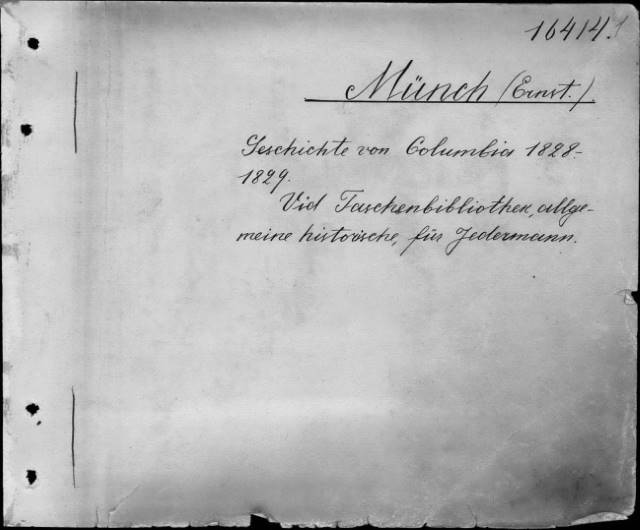 16414.
Münch (Ernst.)
Geschichte von Columbia 1828-
1829.
Vid Taschenbibliothek, allge-
meine historische, für Jedermann.